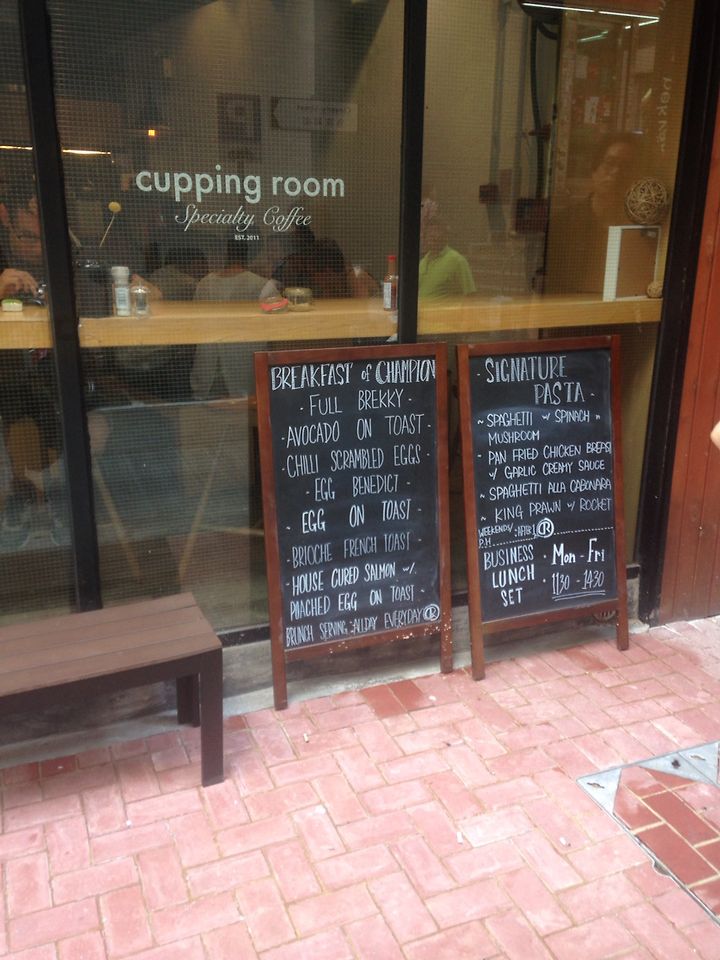 cupping room
Specialty Coffee
EST. 2011
BREAKFAST of CHAMPION
- FULL BREKKY -
- AVOCADO ON TOAST -
- CHILLI SCRAMBLED EGGS -
- EGG BENEDICT -
- EGG ON TOAST -
- BRIOCHE FRENCH TOAST -
- HOUSE CURED SALMON w/.
POACHED EGG ON TOAST -
BRUNCH SERVING ALLDAY EVERYDAY CR
SIGNATURE
PASTA -
~ SPAGHETTI w/ SPINACH n
MUSHROOM
- PAN FRIED CHICKEN BREAST
w/ GARLIC CREAMY SAUCE
~ SPAGHETTI ALLA CABONARA
~ KING PRAWN w/ ROCKET
WEEKENDS/
P.H
CR
BUSINESS
LUNCH
SET
· Mon - Fri
· 1130 - 1430